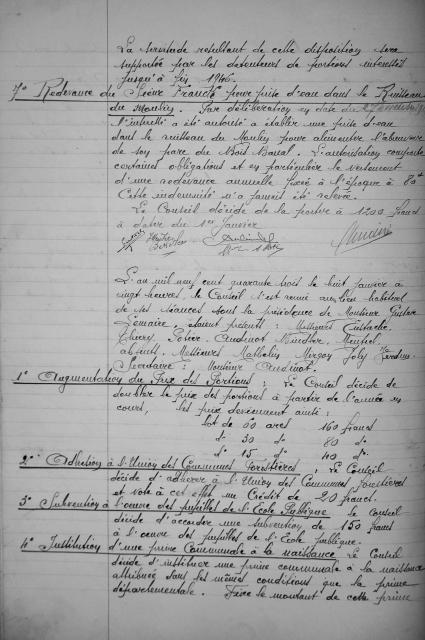 La servitude résultant de cette disposition sera
supportée par les détenteurs de portions intéressés
jusqu'à fin 1946.
7° Redevance du Sieur Franck pour prise d'eau dans le Ruisseau
du Moulin. Par délibération en date du
l'intéressé a été autorisé à établir une prise d'eau
dans le ruisseau du Moulin pour alimenter l'abreuvoir
de son parc du Bois Banal. L'autorisation comporte
certaines obligations et en particulier le versement
d'une redevance annuelle fixée à l'époque à 80
Cette indemnité n'a jamais été relevée.
Le Conseil décide de la porter à 1200 francs
à dater du 1er Janvier
L'an mil neuf cent quarante trois le huit janvier à
vingt heures, le Conseil s'est réuni au lieu habituel
de ses séances sous la présidence de Monsieur Gustave
Lemaire. étaient présents : Messieurs Eustache,
Thiery, Potier, Audinot,
absents. Messieurs Mathelin, Joly
Secrétaire : Monsieur Audinot.
1° Augmentation du Prix des Portions : Le Conseil décide de
doubler le prix des portions à partir de l'année en
cours, les prix deviennent ainsi :
lot de 60 ares 160 francs
d° 30 d° 80 d°
d° 15 d° 40 d°
2° Adhésion à l'Union des Communes Forestières : Le Conseil
décide d'adhérer à l'Union des Communes Forestières
et vote à cet effet un Crédit de 20 francs.
3° Subvention à l'œuvre des pupilles de l'Ecole Publique le Conseil
décide d'accorder une subvention de 150 francs
à l'œuvre des pupilles de l'Ecole publique.
4° Institution d'une prime Communale à la naissance Le Conseil
décide d'instituer une prime communale à la naissance
attribuée dans les mêmes conditions que la prime
départementale. Fixe le montant de cette prime